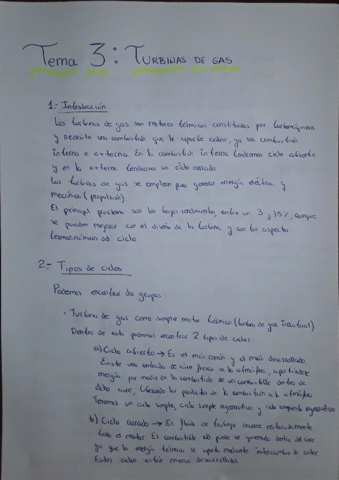 Tema 3: TURBINAS DE GAS
1.- Introducción
Las turbinas de gas son motores térmicos constituidos por turbomáquinas
y necesita una combustión que le aporte calor, ya sea combustión
interna o externa. En la combustión interna tenemos ciclo abierto
y en la externa tenemos un ciclo cerrado
Las turbinas de gas se emplean para generar energía eléctrica y
mecánica (propulsión)
El principal problema son los bajos rendimientos, entre un 3 y 15%, aunque
se pueden mejorar con el diseño de la turbina y con los aspectos
termodinámicos del ciclo
2.- Tipos de ciclos
Podemos encontrar dos grupos
· Turbina de gas como simple motor térmico (turbina de gas industrial)
Dentro de este podemos encontrar 2 tipos de ciclos:
a) Ciclo abierto → Es el más común y el más desarrollado
Existe una entrada de aire fresco a la atmósfera, aportándose
energía por medio de la combustión de un combustible dentro de
dicho aire, liberando los productos de la combustión a la atmósfera
Tenemos un ciclo simple, ciclo simple regenerativo y ciclo compuesto regenerativo
b) Ciclo cerrado → El fluido de trabajo recorre continuamente
todo el motor. El combustible no puede ser quemado dentro del aire
ya que la energía térmica se aporta mediante intercambio de calor
Estos ciclos están menos desarrollados